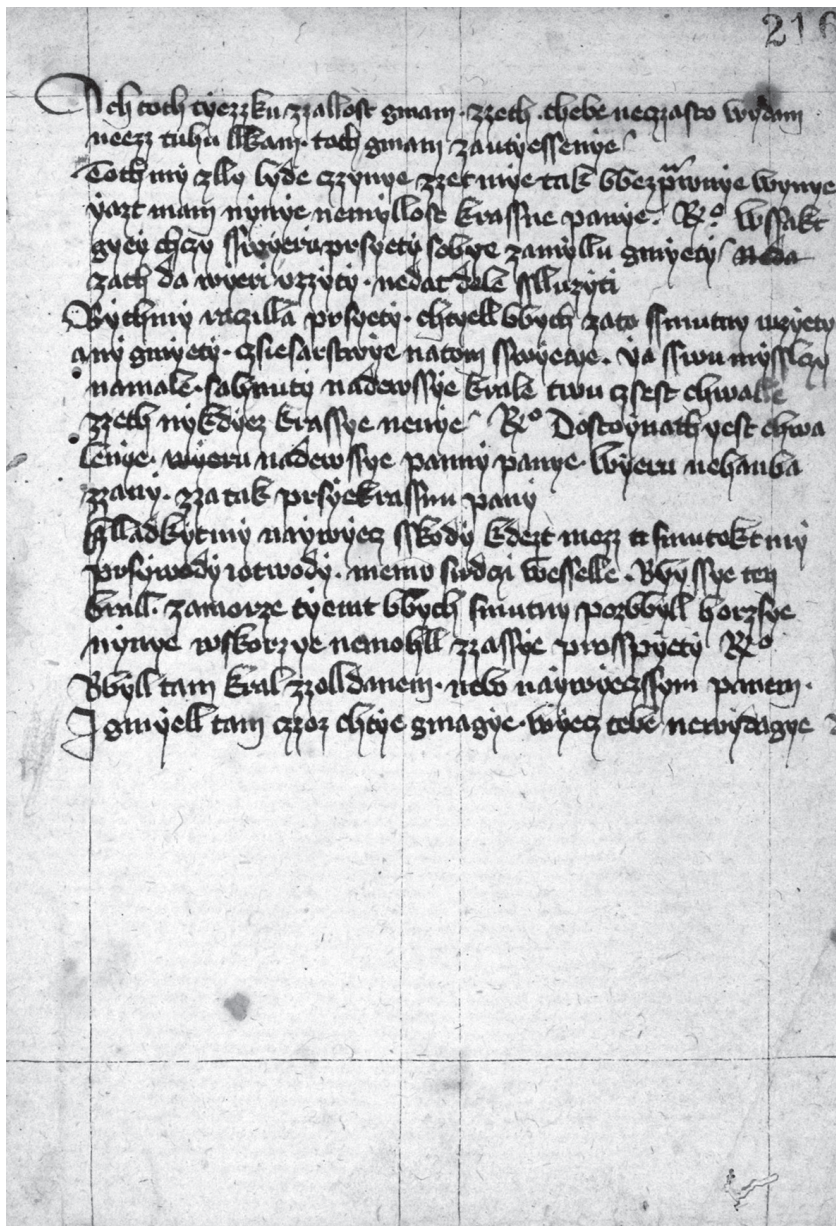 216
Ach toch tyezzku zzallost gmam. zzech. thebe neczasto wydam
neezz tuhu lkam. toch gmam zautyessenye
Toth my zlly lyde czzynye zzet mye tak bbezprawnye wynye
yazt mam nynye nemyllost krassne panye. Ro wssakt
gyey chczy sswyeru prsyety sobye zamyllu gmyety neda
zach da wyeri vzzyty. nedat dele sslluzyti
Bychmy raczilla prsyety. chtyell bbych zato ssmutny wzyety
any gmyety. czsiesarstwye natom sswyetye. ya sswu myssly
namale. sahnuty nadewssye krale twu czsest chwalle
zzeth nykdyez krassye nenye Ro Dostoynath yest chwa
lenye. wyeru nadewssye panny panye. wyeru nehanba
zzany. zzatak prsyekrassnu pany
hlladkytmy naywyecz sskody kdezt mozz ti smutokt my
prsywody rotwody. memu srdczi wesselle. Bbyssye ten
krall. zamorze tyemt bbych smutny pozbbyll horzsye
nynye wskorzye nemohll zzassye prosspyety Ro
Bbyll tam kral zzolldanem. neb naywyeczssym panem.
I gmyell tam czzoz chtye gmagye. wyecz tebe newydagye